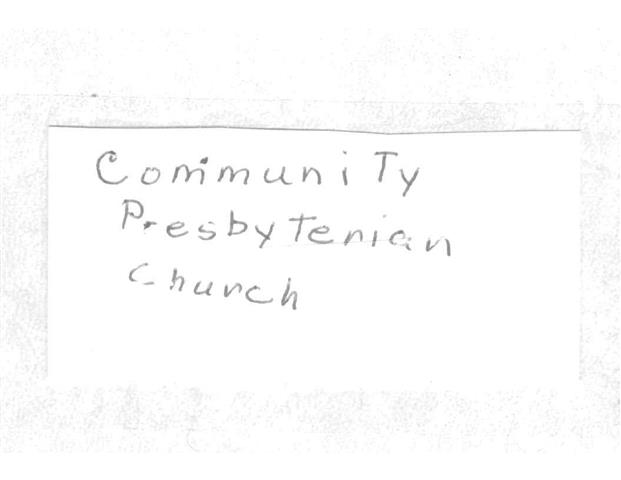 CommuniTy
PresbyTerian
Church